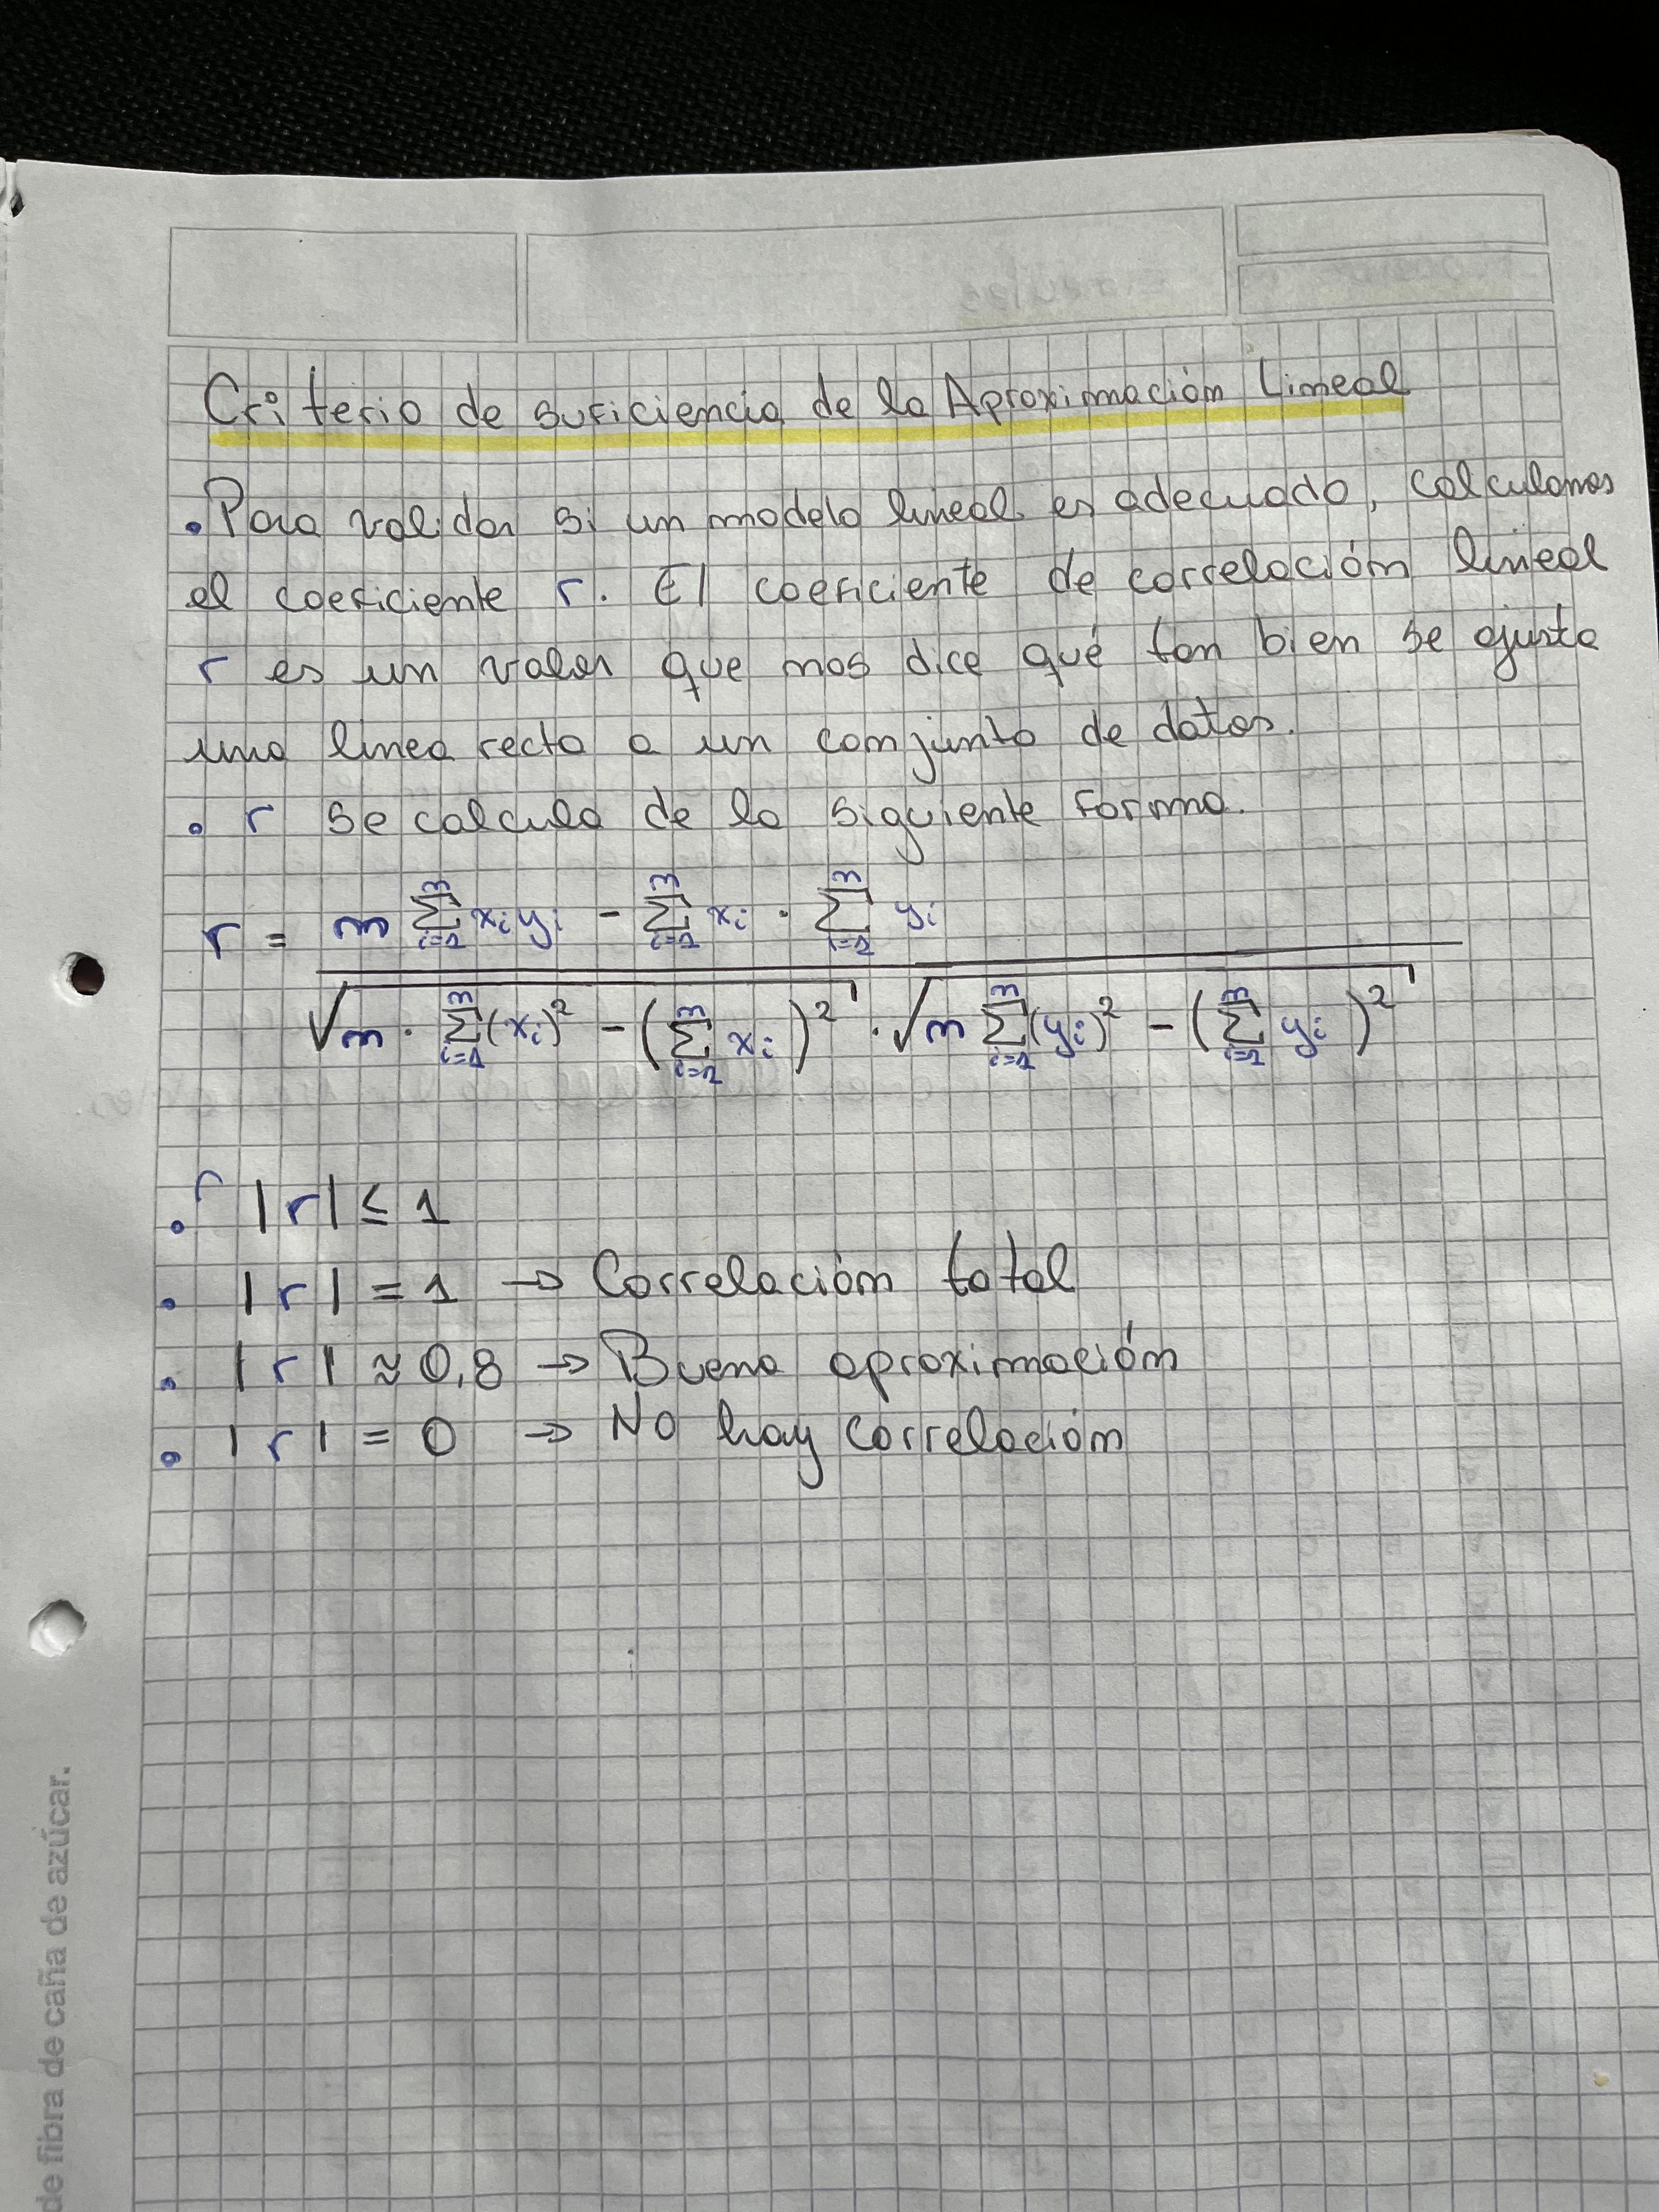 Criterio de suficiencia de la Aproximación Lineal
• Para validar si un modelo lineal es adecuado, calculamos
el coeficiente r. El coeficiente de correlación lineal
r es un valor que nos dice qué tan bien se ajusta
una linea recta a un conjunto de datos.
• r se calcula de la siguiente forma.
r = (n ∑_{i=1}^{n} x_i y_i - ∑_{i=1}^{n} x_i · ∑_{i=1}^{n} y_i) / (√(n · ∑_{i=1}^{n} (x_i)² - (∑_{i=1}^{n} x_i)²) · √(n ∑_{i=1}^{n} (y_i)² - (∑_{i=1}^{n} y_i)²))
• r |r| ≤ 1
• |r| = 1 → Correlación total
• |r| ≈ 0,8 → Buena aproximación
• |r| = 0 → No hay correlación
de fibra de caña de azúcar.